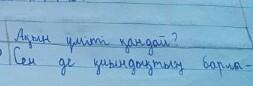 Ақын үміті қандай?
Сен де қиындықтың барлы-